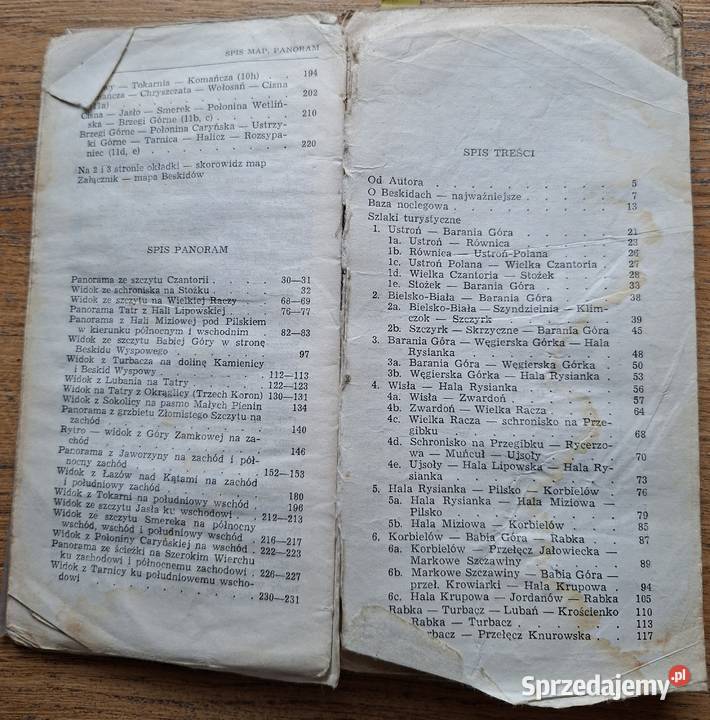 SPIS MAP, PANORAM
— Tokarnia — Komańcza (10h) . 194
— Chryszczata — Wołosań — Cisna
. . . . . 202
Cisna — Jasło — Smerek — Połonina Wetlińska — Brzegi Górne (11b, c) . . 210
Brzegi Górne — Połonina Caryńska — Ustrzyki Górne — Tarnica — Halicz — Rozsypaniec (11d, e) . . . . 220
Na 2 i 3 stronie okładki — skorowidz map
Załącznik — mapa Beskidów
SPIS PANORAM
Panorama ze szczytu Czantorii . . . 30—31
Widok ze schroniska na Stożku . . . 32
Widok ze szczytu na Wielkiej Raczy . . 68—69
Panorama Tatr z Hali Lipowskiej . . 76—77
Panorama z Hali Miziowej pod Pilskiem
w kierunku północnym i wschodnim . 82—83
Widok ze szczytu Babiej Góry w stronę
Beskidu Wyspowego . . . . 97
Widok z Turbacza na dolinę Kamienicy
i Beskid Wyspowy . . . . 112—113
Widok z Lubania na Tatry . . . 122—123
Widok na Tatry z Okrąglicy (Trzech Koron) 130—131
Widok z Sokolicy na pasmo Małych Pienin 134
Panorama z grzbietu Złomistego Szczytu na
zachód . . . . . 140
Rytro — widok z Góry Zamkowej na zachód . . . . . 146
Panorama z Jaworzyny na zachód i północny zachód . . . . 152—153
Widok z Łazów nad Kątami na zachód
i południowy zachód . . . . 180
Widok z Tokarni na południowy wschód 196
Widok ze szczytu Jasła ku wschodowi . 212—213
Widok ze szczytu Smereka na północny
wschód, wschód i południowy wschód . 216—217
Widok z Połoniny Caryńskiej na wschód . 222—223
Panorama ze ścieżki na Szerokim Wierchu
ku zachodowi i północnemu zachodowi . 226—227
Widok z Tarnicy ku południowemu wschodowi . . . . . 230—231
SPIS TREŚCI
Od Autora . . . . . 5
O Beskidach — najważniejsze . . . 7
Baza noclegowa . . . . 13
Szlaki turystyczne
1. Ustroń — Barania Góra . . . 21
1a. Ustroń — Równica . . . 23
1b. Równica — Ustroń-Polana . . 26
1c. Ustroń Polana — Wielka Czantoria . 27
1d. Wielka Czantoria — Stożek . . 28
1e. Stożek — Barania Góra . . 33
2. Bielsko-Biała — Barania Góra . . 38
2a. Bielsko-Biała — Szyndzielnia — Klimczok — Szczyrk . . . . 39
2b. Szczyrk — Skrzyczne — Barania Góra . 45
3. Barania Góra — Węgierska Górka — Hala
Rysianka . . . . . 48
3a. Barania Góra — Węgierska Górka . 50
3b. Węgierska Górka — Hala Rysianka . 53
4. Wisła — Hala Rysianka . . . 56
4a. Wisła — Zwardoń . . . 57
4b. Zwardoń — Wielka Racza . . 64
4c. Wielka Racza — schronisko na Przegibku . . . . . 68
4d. Schronisko na Przegibku — Rycerzowa — Muńcuł — Ujsoły . . 70
4e. Ujsoły — Hala Lipowska — Hala Rysianka . . . . . 73
5. Hala Rysianka — Pilsko — Korbielów . 76
5a. Hala Rysianka — Hala Miziowa —
Pilsko . . . . . 79
5b. Hala Miziowa — Korbielów . . 85
6. Korbielów — Babia Góra — Rabka . . 87
6a. Korbielów — Przełęcz Jałowiecka —
Markowe Szczawiny . . . 89
6b. Markowe Szczawiny — Babia Góra —
przeł. Krowiarki — Hala Krupowa . 94
6c. Hala Krupowa — Jordanów — Rabka 105
Rabka — Turbacz — Lubań — Krościenko 110
Rabka — Turbacz . . . 113
Turbacz — Przełęcz Knurowska . . 117
Sprzedajemy.pl